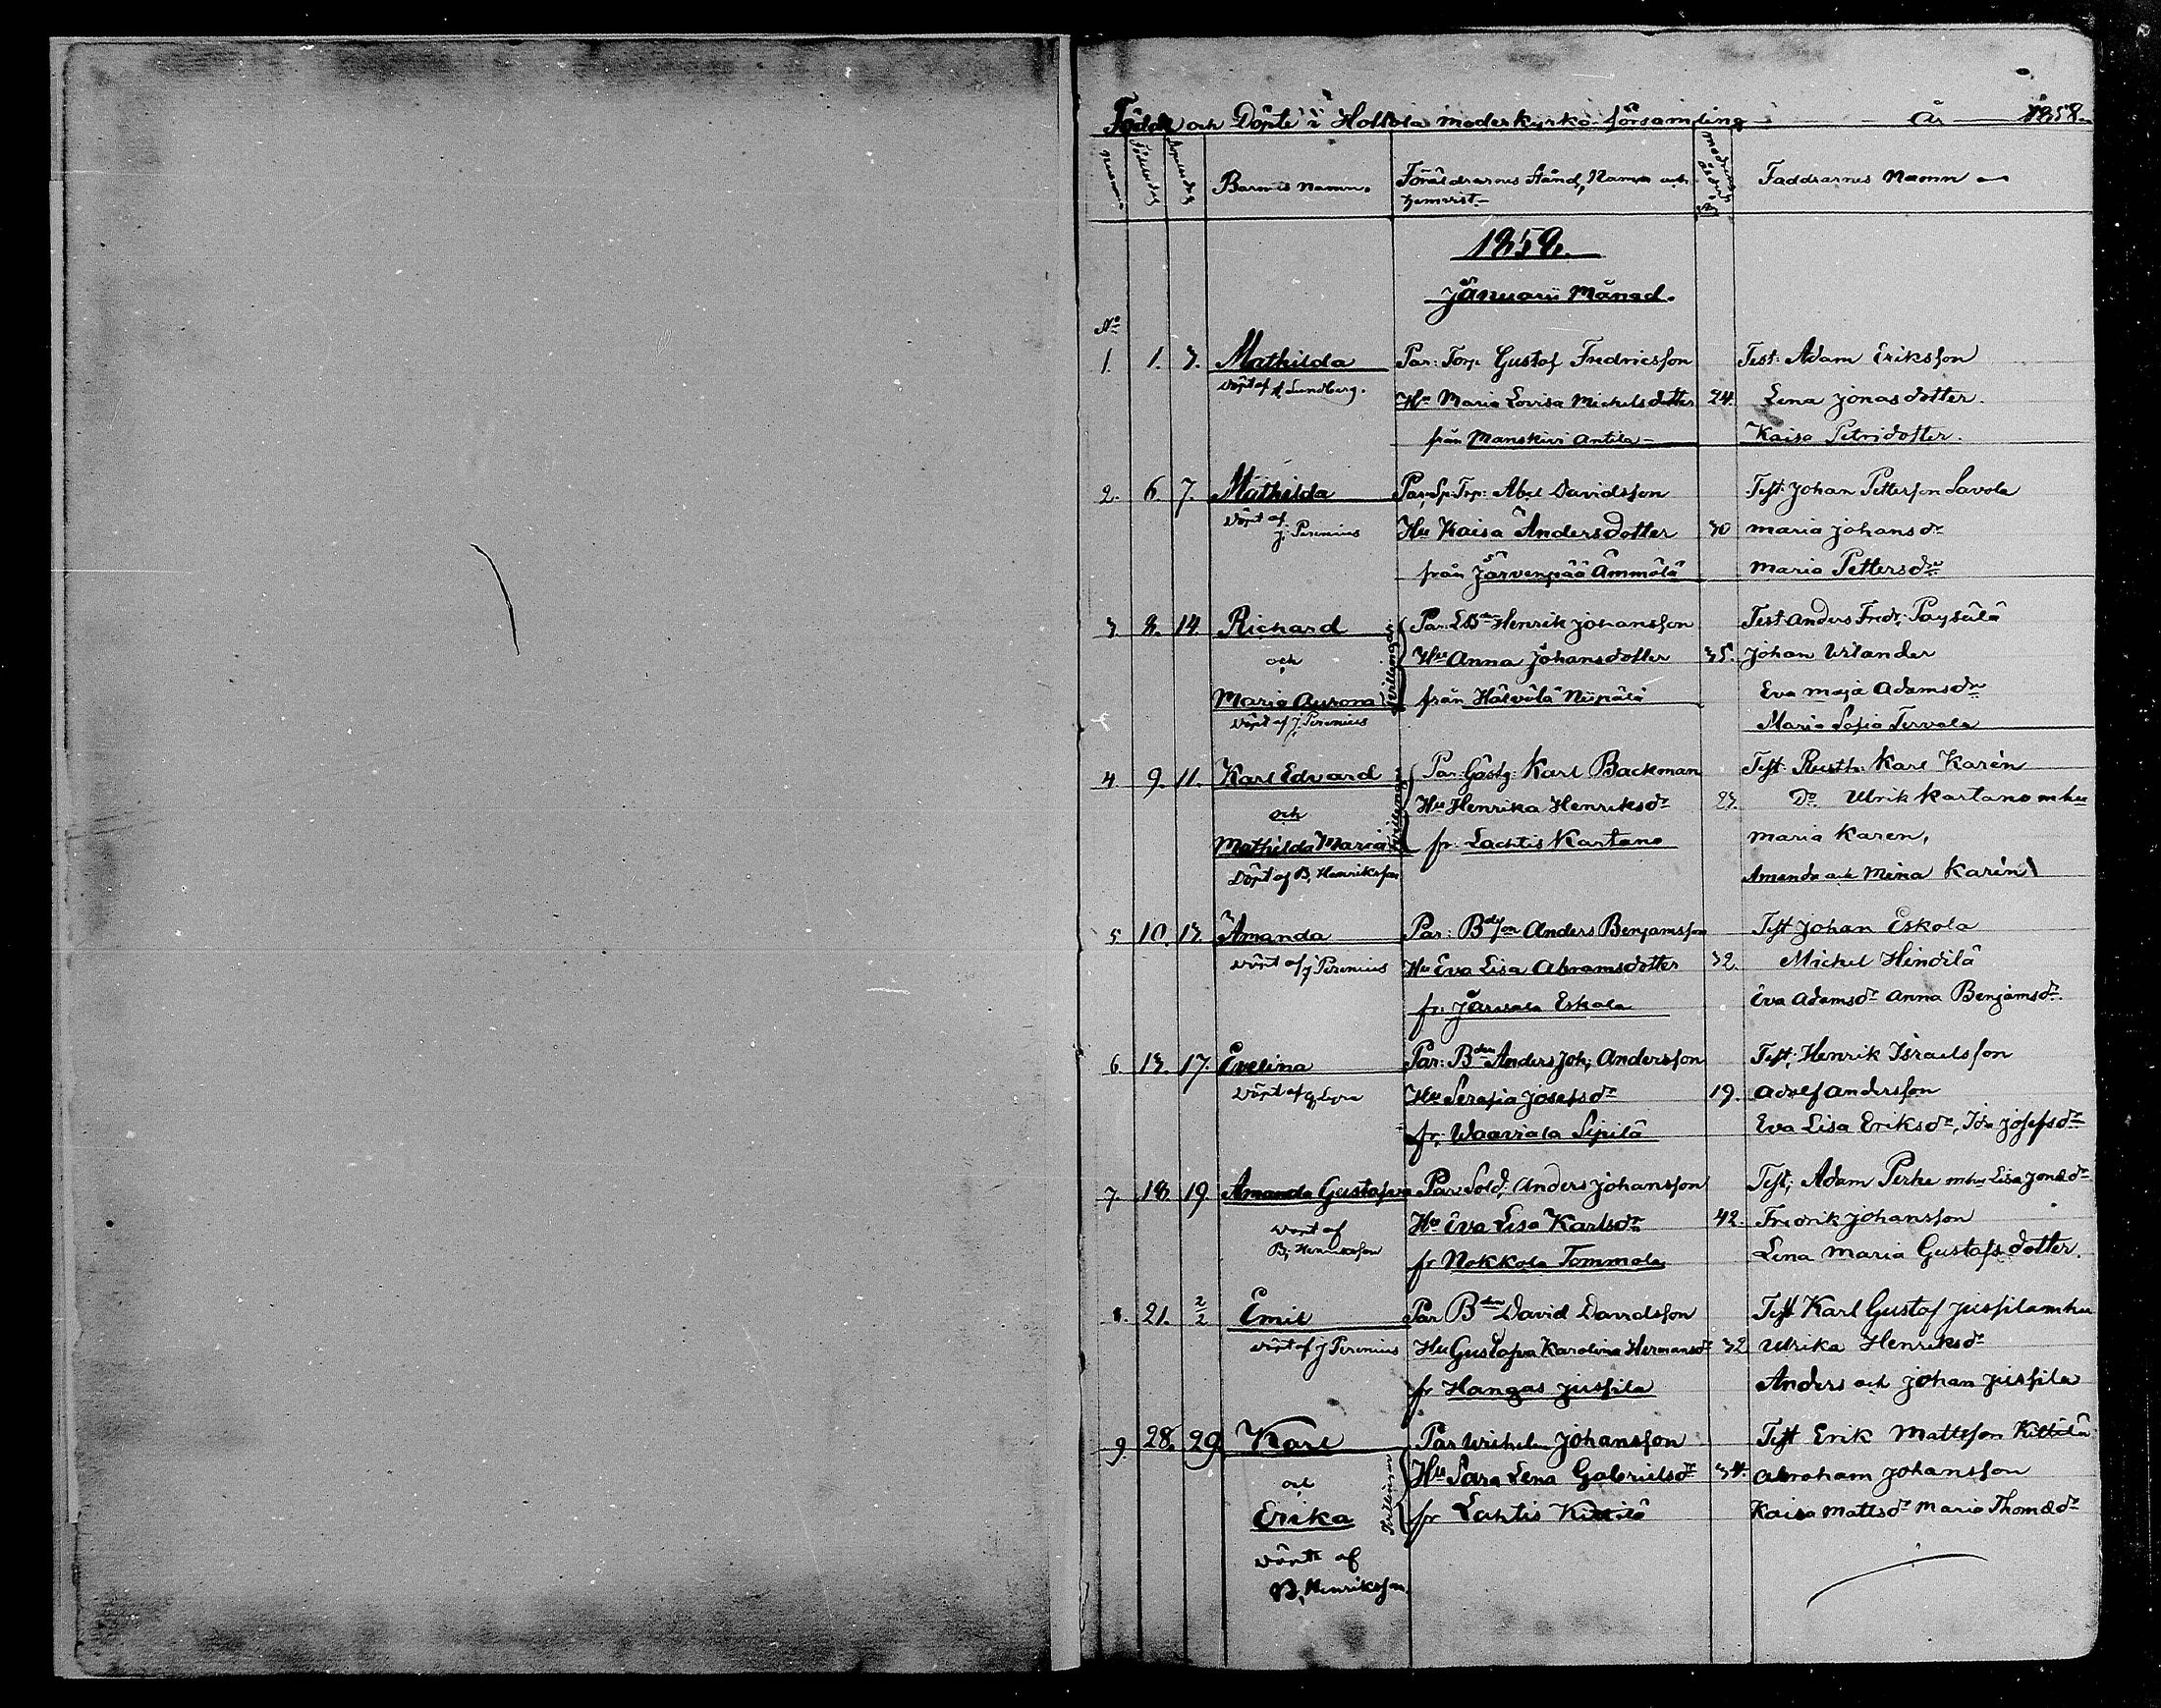 Födde och Döpte i Hollola moderkyrko församling År 1858.
Numero Födelsedag Dopelsedag Barnets namn. Föräldrarnes Stånd, Namn och Modrens ålder Faddrarnes Namn
hemvist.
1858.
Januarii Månad.
No
1. 1. 3. Mathilda Par: Torp. Gustaf Fredricsson Test: Adam Eriksson
döpt af Lundberg. Hu Maria Lovisa Michelsdotter 24. Lena Jonasdotter.
från Manskivi Antila Kaisa Petridotter.
2. 6. 7. Mathilda Par. Sp: Torp: Abel Davidsson Test: Johan Pettersson Lavola
Döpt af Hu Kaisa Andersdotter 30 Maria Johansdr
J. Perenius
från Järvenpää Ämmälä Maria Pettersdr
3 8. 14. Richard Par: Bden Henrik Johansson Test Anders Fredr. Paysälä
och Tvillingar Hu Anna Johansdotter 35. Johan Urlander
Maria Aurora från Hälvälä Niipälä Eva Maja Adamsdr
Döpt af J. Perenius Maria Sofia Tervala
4. 9. 11. Karl Edvard Par: Gästg: Karl Backman Test: Rusth: Karl Karén
och Tvillingar Hu Henrika Henriksdr 23. Do Ulrik Kartano m hu
Mathilda Maria fr: Lachtis Kartano Maria Karen,
Döpt af B. Henriksson Amanda och Mina Karén
5 10. 13. Amanda Par: Bdeson Anders Benjamsson Test Johan Eskola
döpt af J Perenius Hu Eva Lisa Abramsdotter 32. Michel Hindilä
fr: Järvala Eskola Eva Adamsdr Anna Benjamsdr.
6. 13. 17. Evelina Par: Bden Anders Joh: Andersson Test: Henrik Israelsson
Döpt af Hu Serafia Josefsdr 19. Adolf Andersson
fr: Waaviala Sipilä Eva Lisa Eriksdr, Ida Josefsdr
7. 18 19. Amanda Gustafva Par Sold: Anders Johansson Test; Adam Perhe m hu Lisa Jonædr
döpt af Hu Eva Lisa Karlsdr 42. Fredrik Johansson
B. Henriksson
fr Nokkola Tommola Lena Maria Gustafsdotter.
8. 21. 2/2 Emil Par Bden David Davidsson Test Karl Gustaf Jussila m hu
döpt af J Perenius Hu Gustafva Karolina Hermansdr 32 Ulrika Henriksdr
fr Hangas Jussila Anders och Johan Jussila
9. 28. 29. Karl Par Wilhelm Johansson Test Erik Mattsson Kittilä
och Tvillingar Hu Sara Lena Gabrielsdr 34. Abraham Johansson
Erika fr Lahtis Kittilä Kaisa Mattsdr Maria Thomædr
döpt af
B. Henriksson.